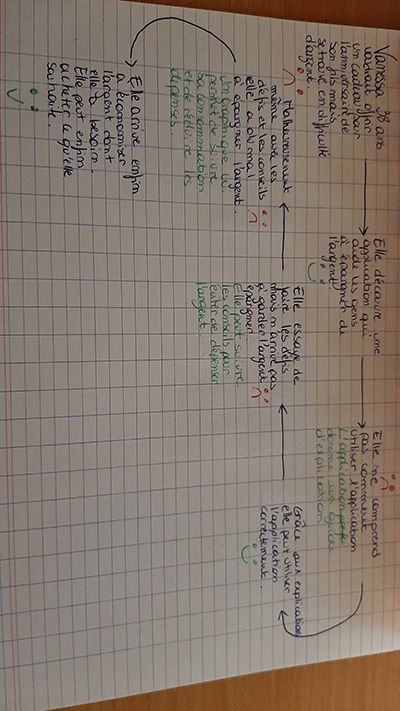 Vanessa 38 ans
voudrait offrir
un cadeau pour
l'anniversaire de
son fils mais
se trouve en difficulté
d'argent.
Elle découvre une
application qui
aide les gens
à épargner de
l'argent.
Elle ne comprend
pas comment
utiliser l'application
L'application
donne un guide
d'explication
Grâce aux explications
elle peut utiliser
l'application
correctement.
Elle essaye de
faire les défis
mais n'arrive pas
à garder l'argent
épargner.
Elle peut suivre
les conseils pour
éviter de dépenser
l'argent.
Malheureusement
même avec les
défis et les conseils
elle a du mal
à épargner l'argent.
Un graphique lui
permet de suivre
sa consommation
et de réduire les
dépenses.
Elle arrive enfin
à économiser
l'argent dont
elle a besoin.
Elle peut enfin
acheter ce qu'elle
souhaite.